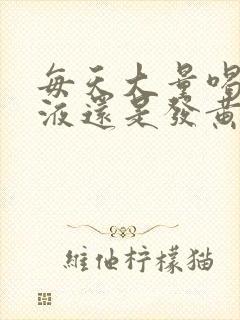 每天大量喝
液還是發黃
維他柠檬猫